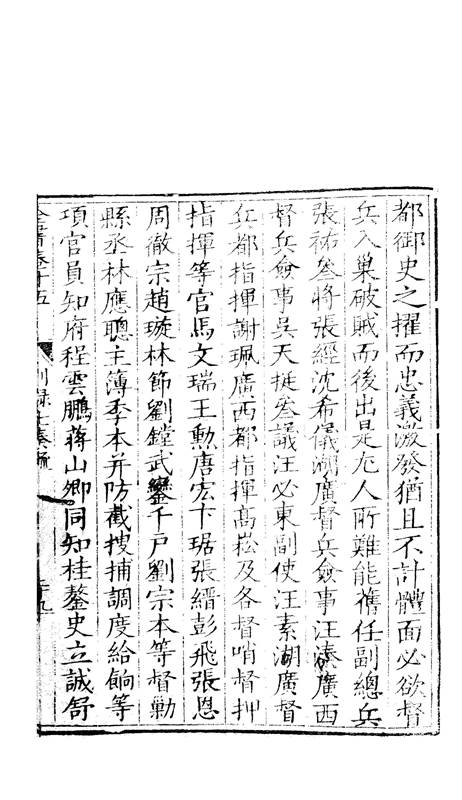 都御史之擢而忠義激發猶且不計體面必欲督
兵入巢破賊而後出是尤人所難能舊任副總兵
張祐參將張經沈希儀湖廣督兵僉事汪溱廣西
督兵僉事吳天挺參議汪必東副使汪素湖廣督
兵都指揮謝珮廣西都指揮高崧及各督哨督押
指揮等官馬文瑞王勳唐宏卞琚張縉彭飛張恩
周徹宗趙璇林節劉鏜武鑾千戶劉宗本等督勦
縣丞林應聰主簿李本并防截搜捕調度給餉等
項官員知府程雲鵬蔣山卿同知桂鏊史立誠舒
全書卷十五 別錄七奏疏